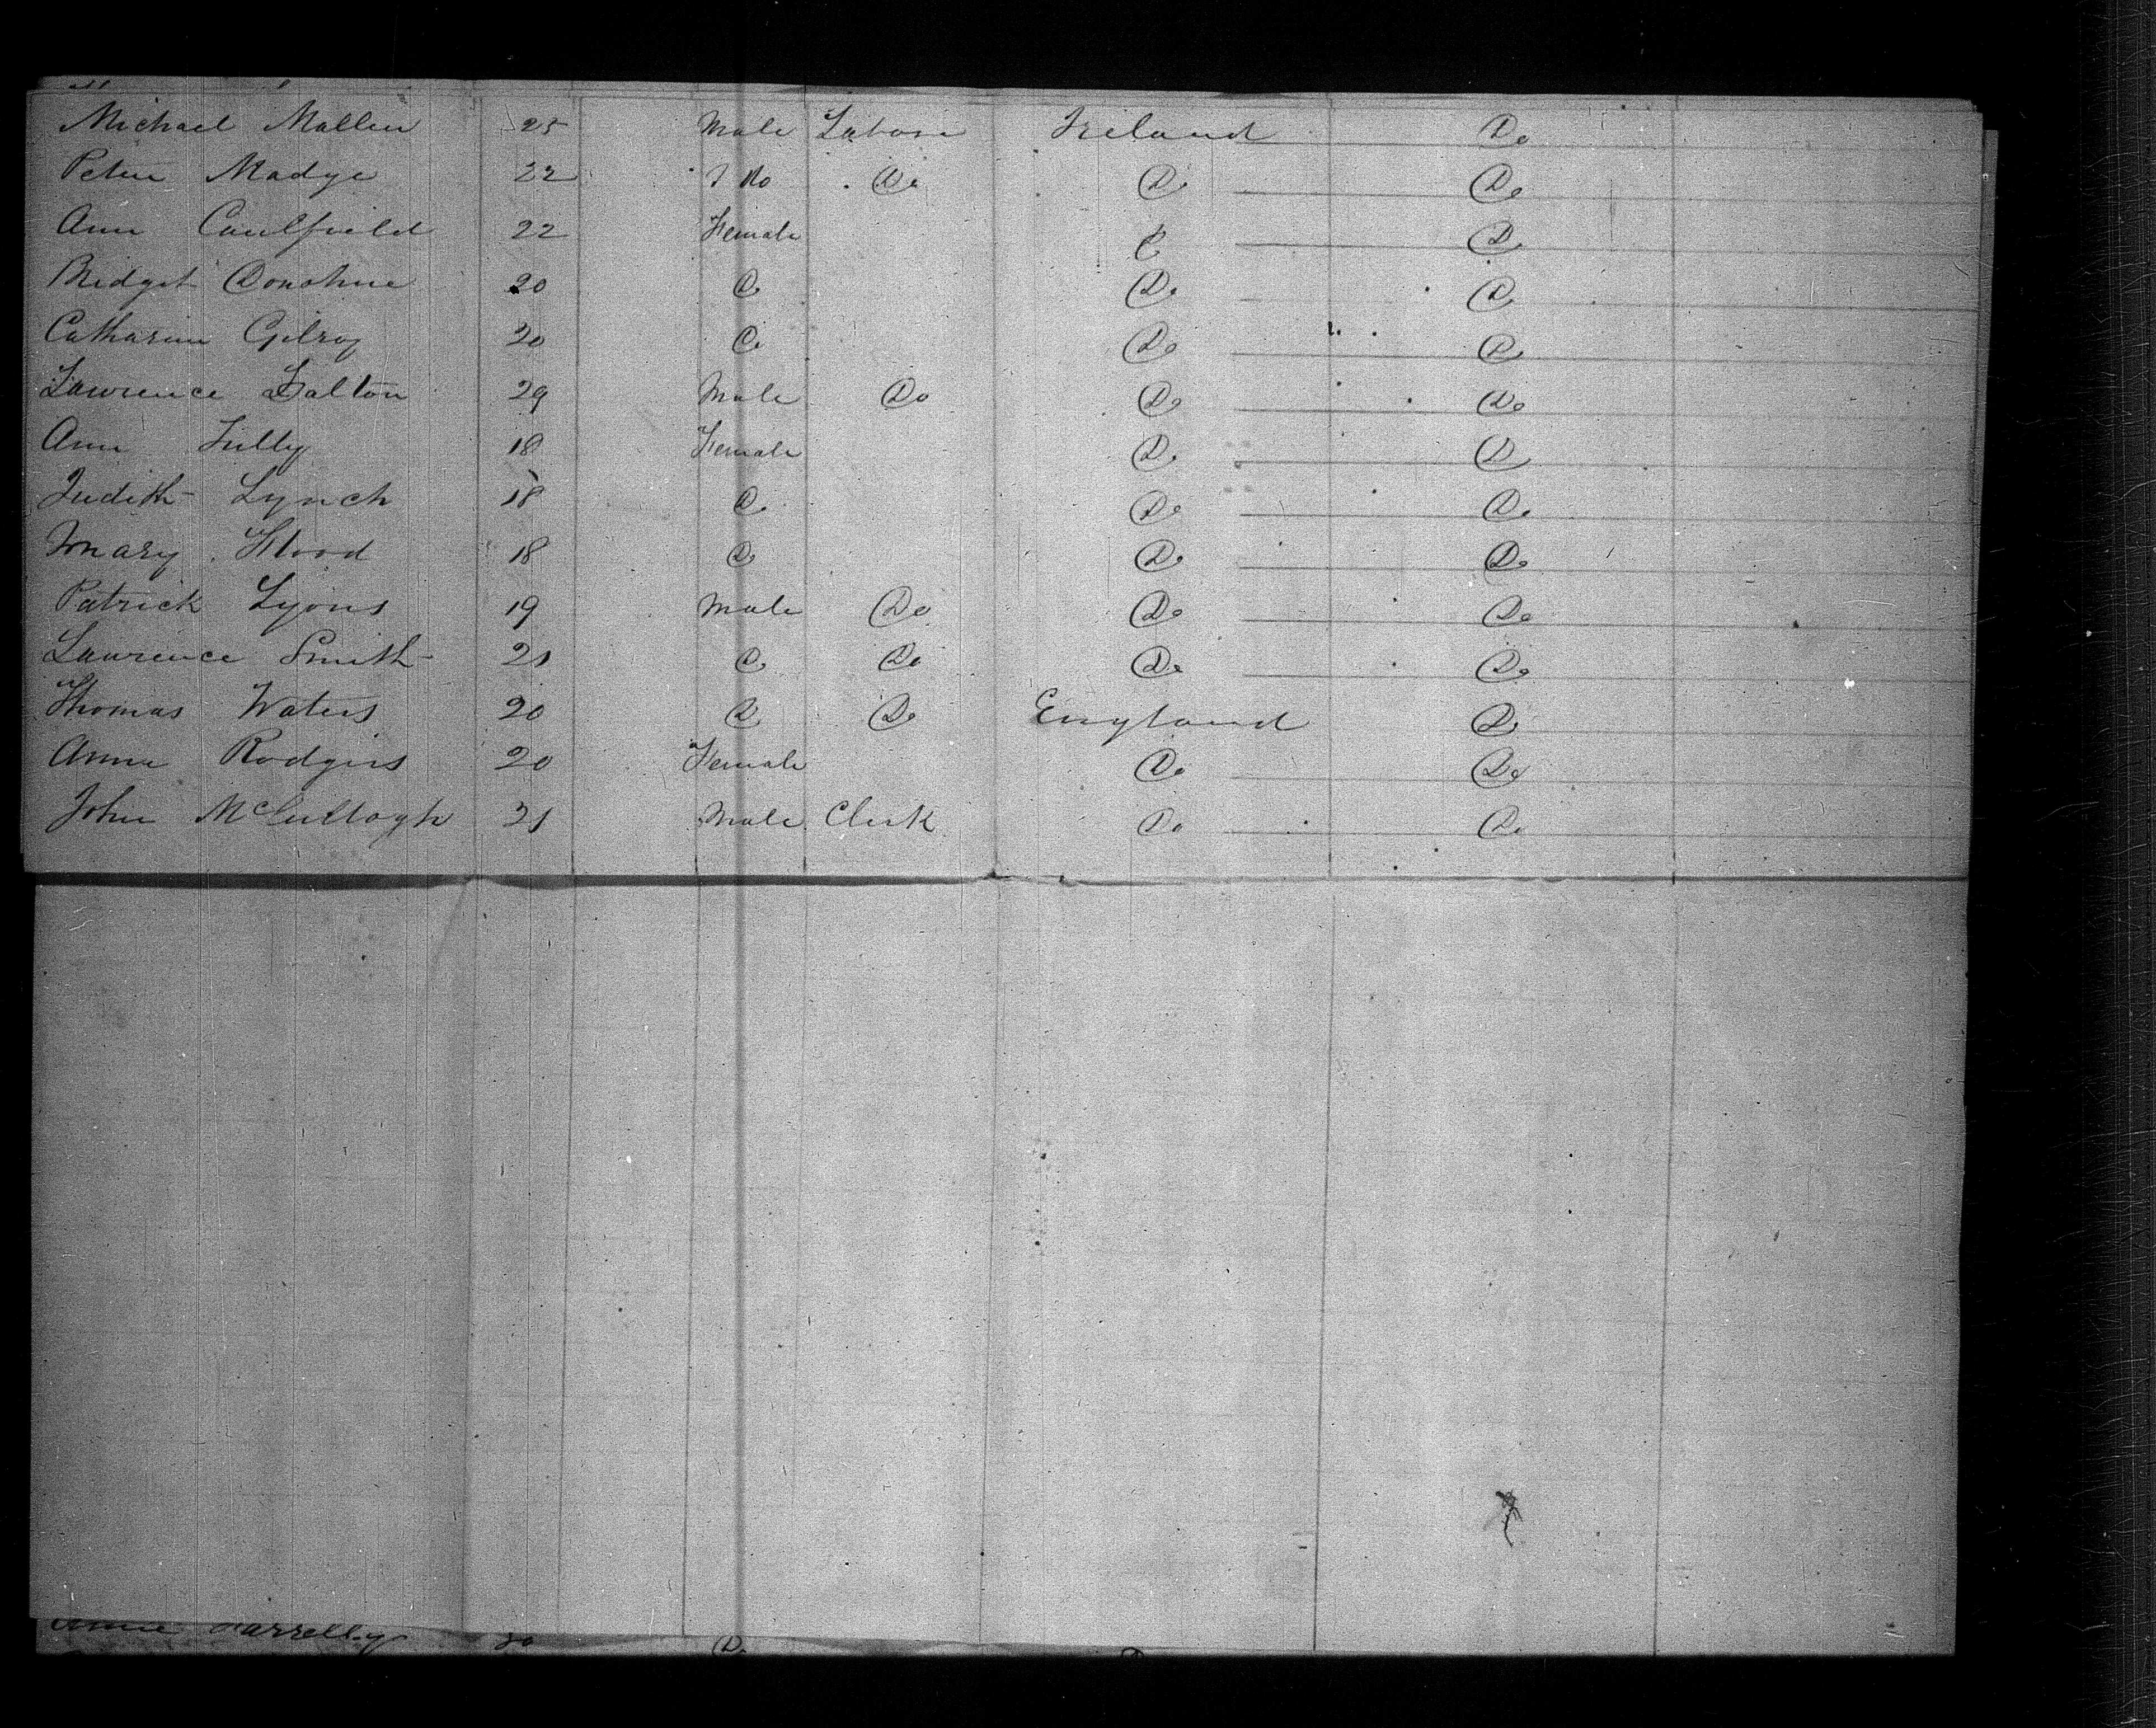 Michael Mallen 25 Male Labore Ireland Do
Peter Madge 22 Do Do Do Do
Ann Caulfield 22 Female Do Do
Bridget Donohue 20 Do Do Do
Catharine Gilroy 20 Do Do Do
Lawrence Dalton 29 Male Do Do Do
Ann Tully 18 Female Do Do
Judith Lynch 18 Do Do Do
Mary Flood 18 Do Do Do
Patrick Lyons 19 Male Do Do Do
Lawrence Smith 21 Do Do Do Do
Thomas Waters 20 Do Do England Do
Anne Rodgers 20 Female Do Do
John McCullogh 21 Male Clerk Do Do
Farrelly Do